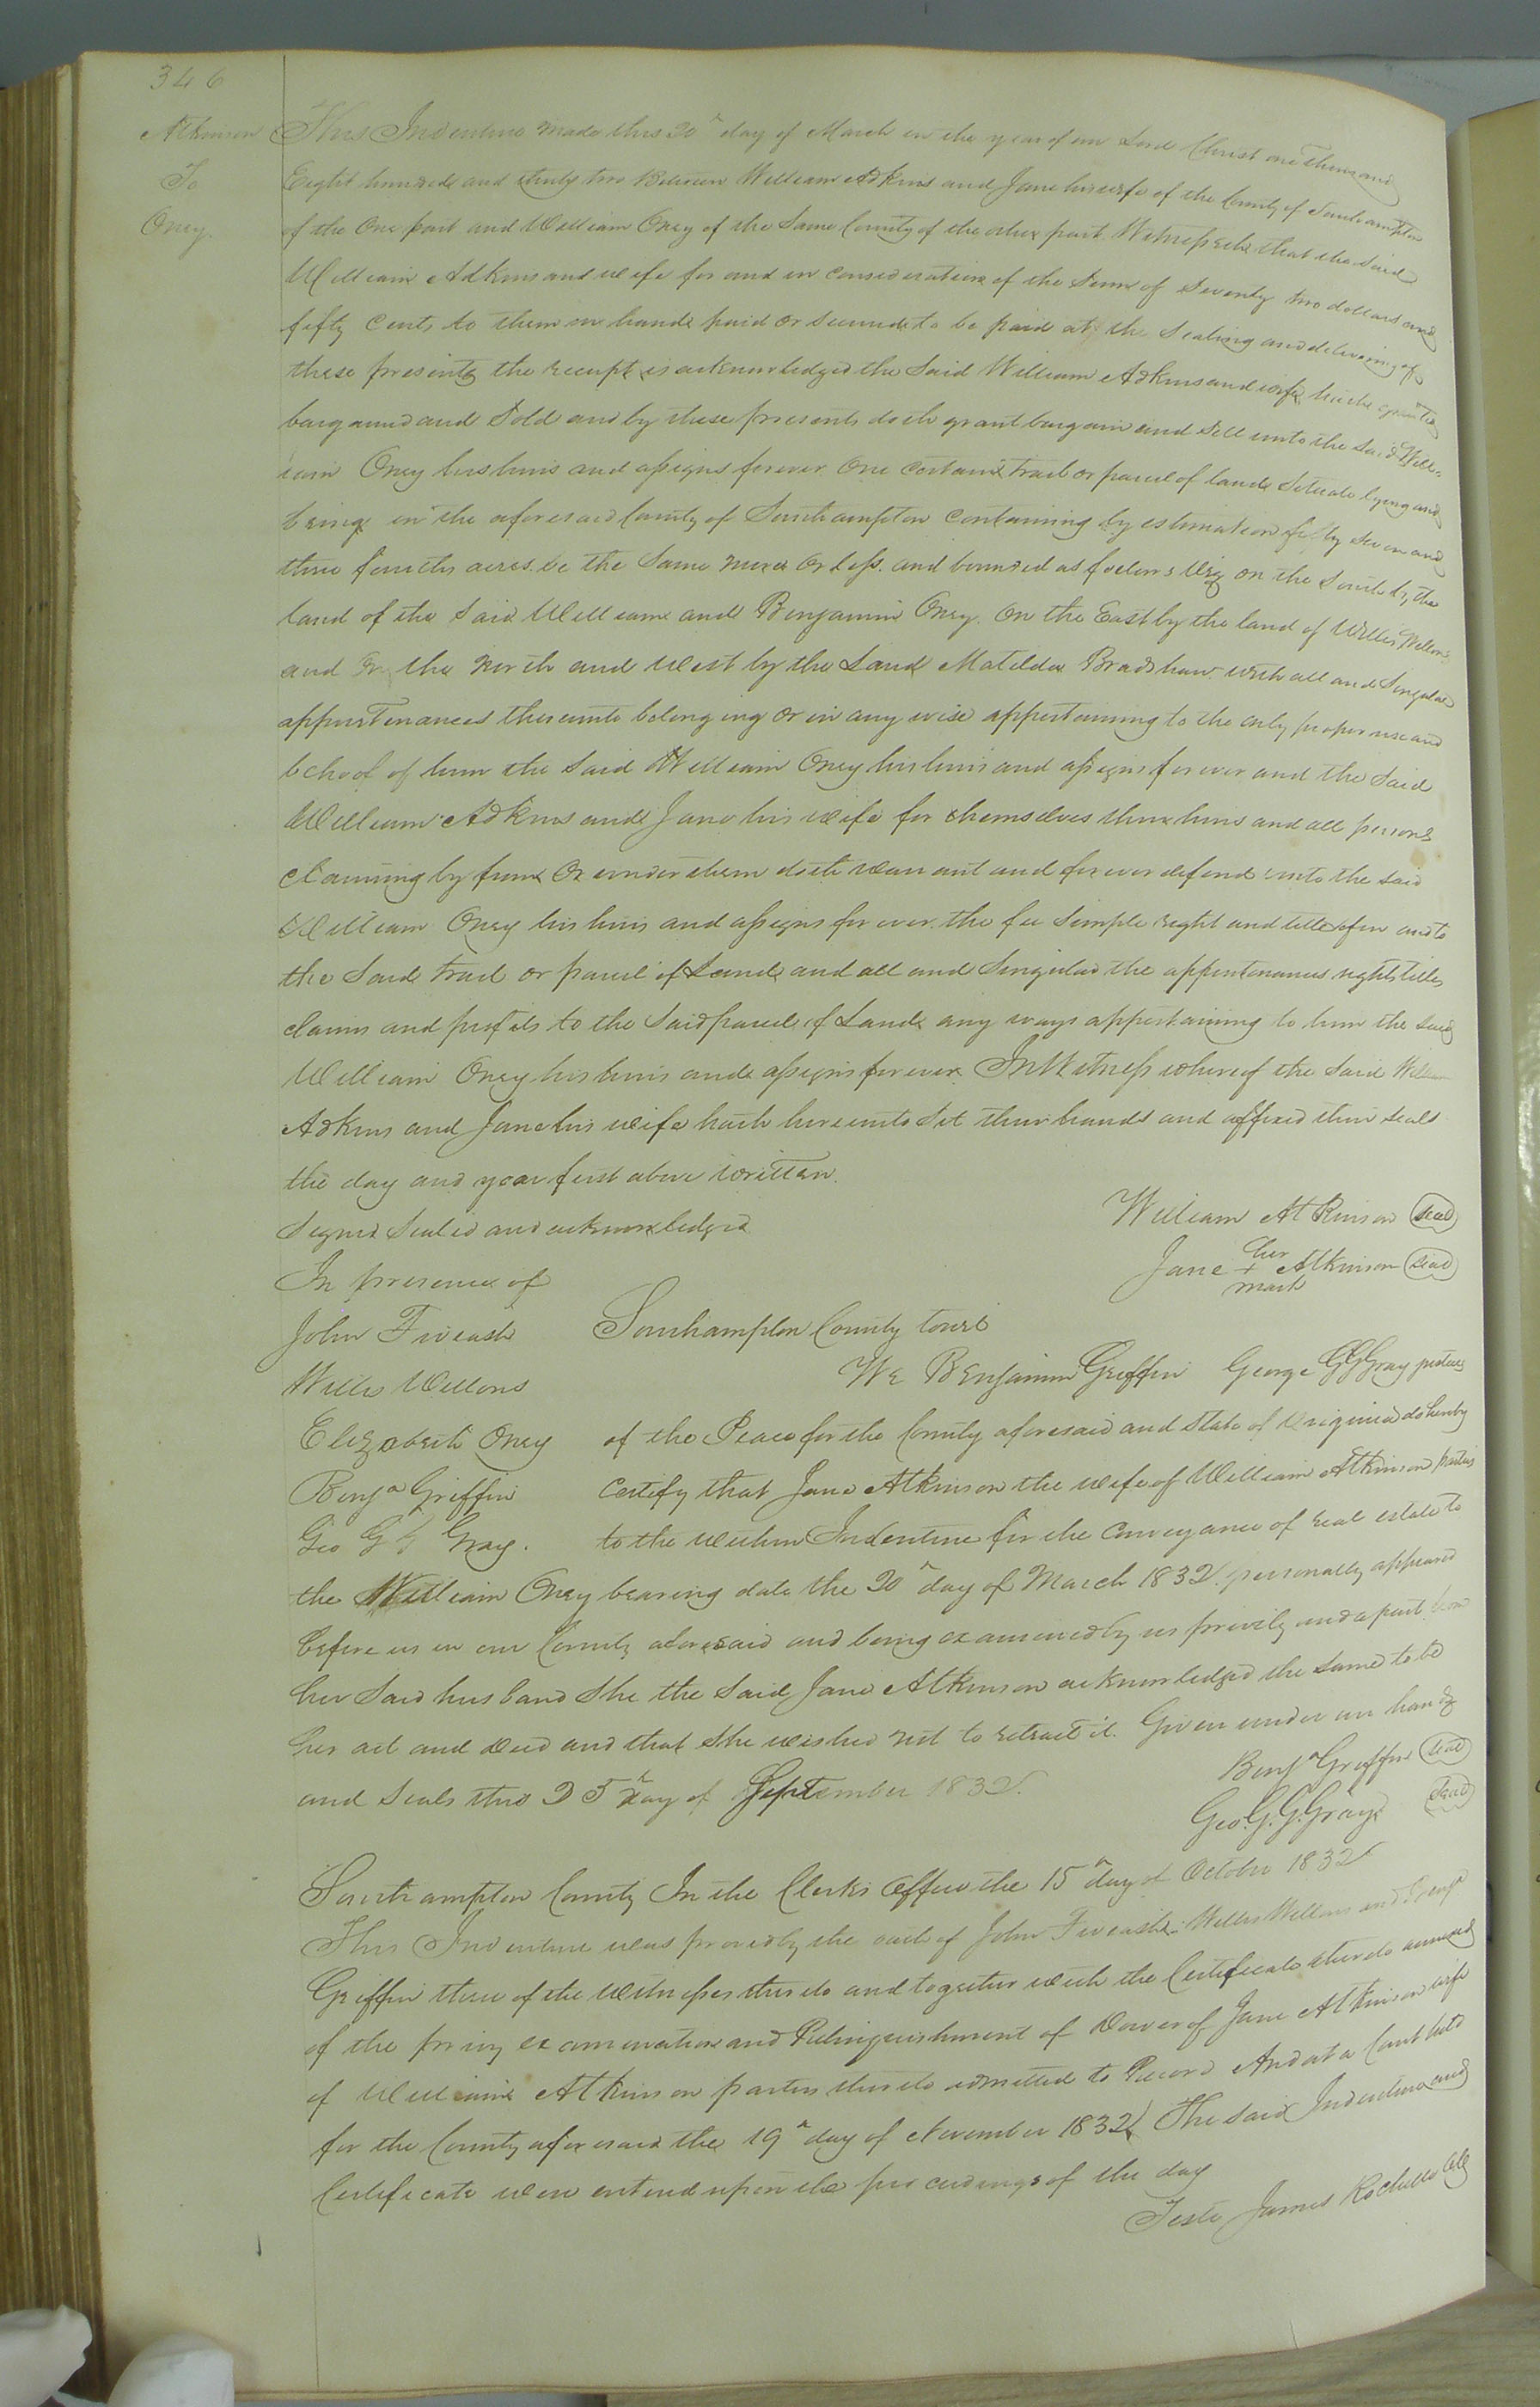 346
Atkinson
To
Oney.
This Indenture made this 20th day of March in the year of our Lord Christ one Thousand
Eight hundred and thirty two Between William Adkins and Jane his wife of the County of Southampton
of the One part and William Oney of the Same County of the other part Witnesseth that the Said
William Adkins and wife for and in consideration of the Sum of Seventy two dollars and
fifty Cents to them in hand paid or secured to be paid at the Sealing and delivering of
these presents the receipt is acknowledged the Said William Adkins and wife hath granted
bargained and Sold and by these presents doth grant bargain and Sell unto the Said Will-
iam Oney his heirs and assigns forever One Certain tract or parcel of land Situate lying and
being in the aforesaid County of Southampton Containing by estimation fifty seven and
three fourths acres be the Same more or less. and bounded as follows Viz on the South by the
land of the Said William and Benjamin Oney. On the East by the land of Willis Wellons
and On the North and West by the Land Matilda Bradshaw with all and Singular
appurtenances thereunto belonging or in any wise appertaining to the only proper use and
behoof of him the Said William Oney his heirs and assigns forever and the Said
William Adkins and Jane his wife for themselves their heirs and all persons
claiming by from Or under them doth warrant and forever defend unto the said
William Oney his heirs and assigns forever. the fee Simple right and title of in and to
the Said tract or parcel of Land and all and Singular the appurtenances rights titles
claims and profits to the Said parcel of Land any ways appertaining to him the Said
William Oney his heirs and assigns forever. In Witness whereof the Said William
Adkins and Jane his wife hath hereunto Set their hands and affixed their seals
the day and year first above written.
Signed Sealed and acknowledged
William Atkinson Seal
In presence of
Jane her + mark Atkinson Seal
John Fiveash
Willis Wellons
Elizabeth Oney
Benja Griffin
Geo G G Gray.
Southampton County towit
We Benjamin Griffin George G G Gray justices
of the Peace for the County aforesaid and State of Virginia do hereby
Certify that Jane Atkinson the wife of William Atkinson parties
to the within Indenture for the Conveyance of real estate to
the William Oney bearing date the 20th day of March 1832. personally appeared
before us in our County aforesaid and being examined by us privily and apart from
her Said husband She the Said Jane Atkinson acknowledged the Same to be
her act and deed and that She wished not to retract it. Given under our hands
and Seals this 25th day of September 1832.
Benja Griffin Seal
Geo. G. G. Gray. Seal
Southampton County In the Clerks Office the 15th day of October 1832
This Indenture was proved by the oath of John Fiveash. Willis Wellons and Benja
Griffin three of the Witnesses thereto and together with the Certificate thereto annexed
of the privy examination and Relinquishment of Dower of Jane Atkinson wife
of William Atkinson parties thereto admitted to Record And at a Court held
for the County aforesaid the 19th day of November 1832 The Said Indenture and
Certificate were entered upon the proceedings of the day
Teste James Rochelle Clk